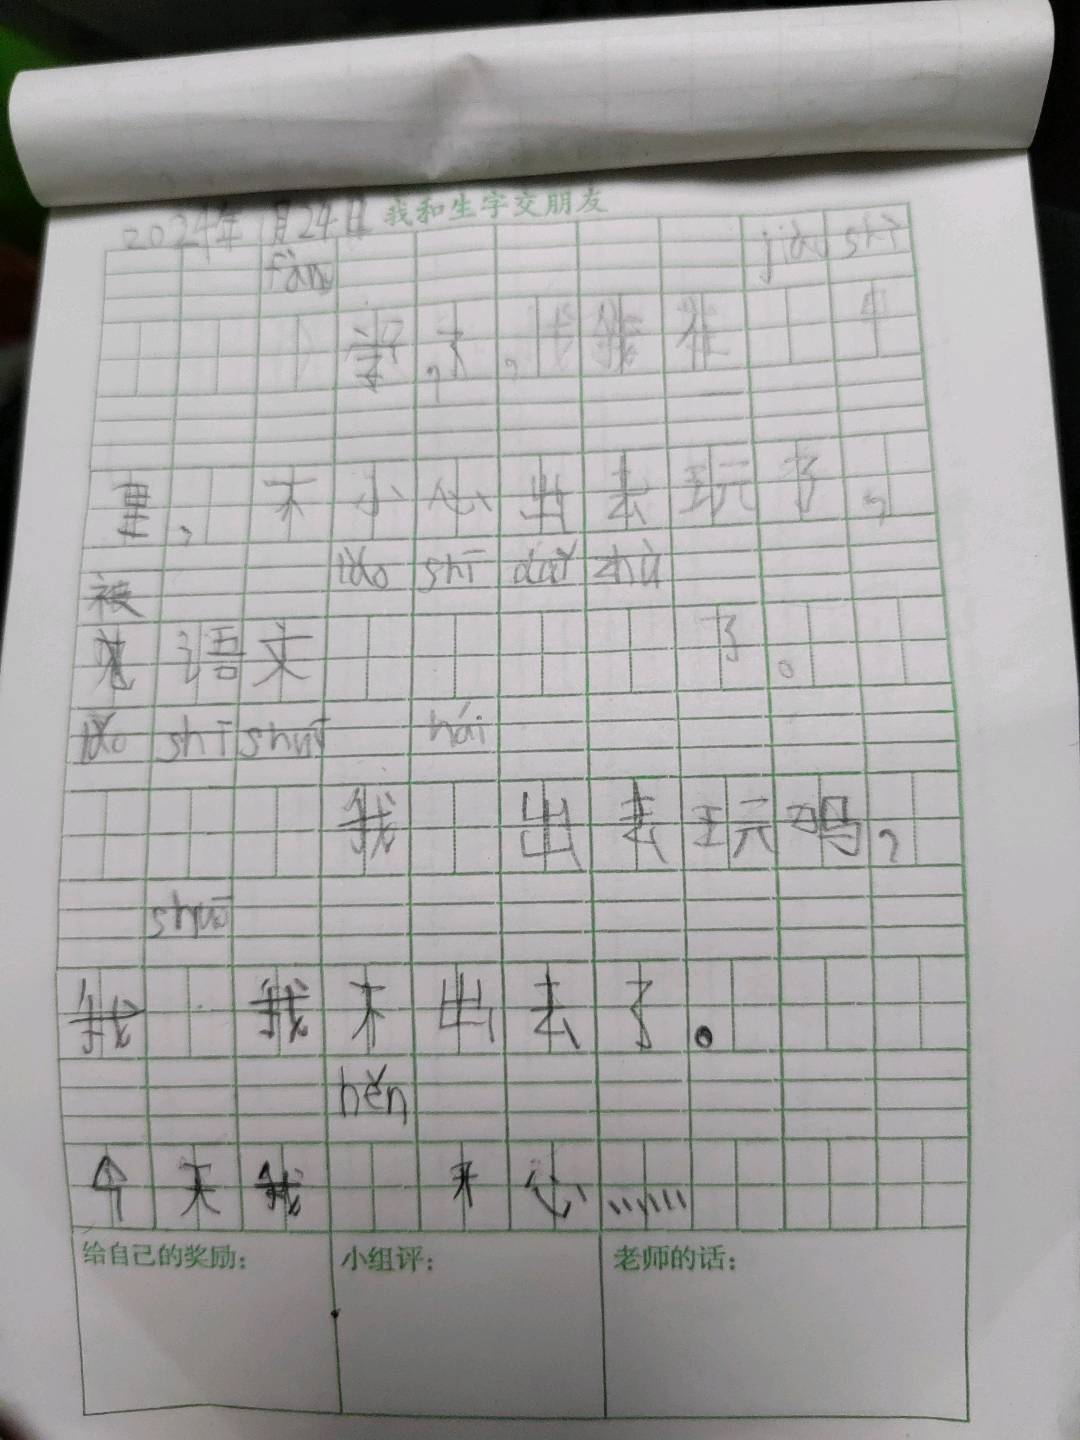 2024年1月24日 我和生字交朋友
fàn jiào shì
学了，我就在
里，不小心出去玩了，
lǎo shī zhuā zhù
被语文了。
lǎo shī shuō hái
我出去玩吗？
shuō
我我不出去了。
hěn
今天我开心……
给自己的奖励： 小组评： 老师的话：